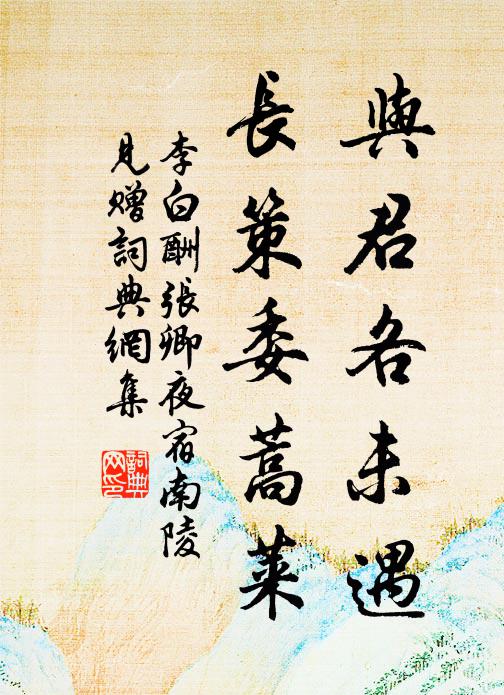 與君各未遇
長策委蒿萊
李白酬張卿夜宿南陵
見贈詞典網集
詞典
网印